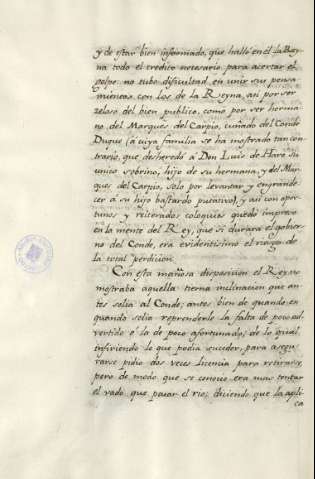 y de estar bien informado, que halló en él la Rey
na todo el credito necesario para acertar el
golpe: no tubo dificultad en unir sus pensa
mientos con los de la Reyna, asi por ser
zeloso del bien publico, como por ser herma
no del Marques del Carpio, cuñado del Conde
Duque (a cuya familia se ha mostrado tan con
trario, que desheredó a Don Luis de Haro su
unico sobrino, hijo de su hermana, y del Mar
ques del Carpio, solo por levantar y engrande
cer a su hijo bastardo putativo), y asi con opor
tunos y reiterados coloquios quedó impreso
en la mente del Rey, que si durara el gobier
no del Conde, era evidentisimo el riesgo de
la total perdicion.
Con esta mañosa disposicion el Rey no
mostraba aquella tierna inclinacion que an
tes solia al Conde; antes bien de quando en
quando solia reprenderle la falta de poco ad
vertido ó la de poco afortunado; de lo qual
infiriendo lo que podia suceder, para asegu
rarse pidio dos veces licencia para retirarse,
pero de modo que se conocio era mas tentar
el vado, que pasar el rio; diciendo que la apli
ca